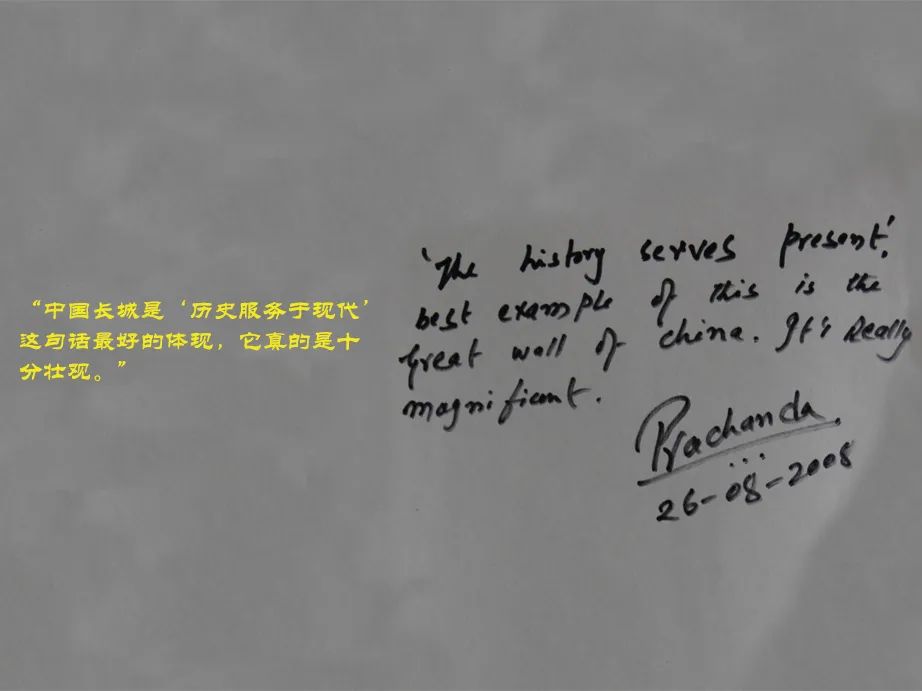 “中国长城是‘历史服务于现代’
这句话最好的体现，它真的是十
分壮观。”
‘The history serves present’.
best example of this is the
great wall of china. It's Really
magnificant.
Prachanda
26-08-2008